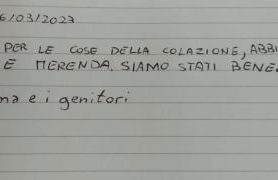 6/03/2023
PER LE COSE DELLA COLAZIONE, ABBI
E MERENDA. SIAMO STATI BENE
na e i genitori